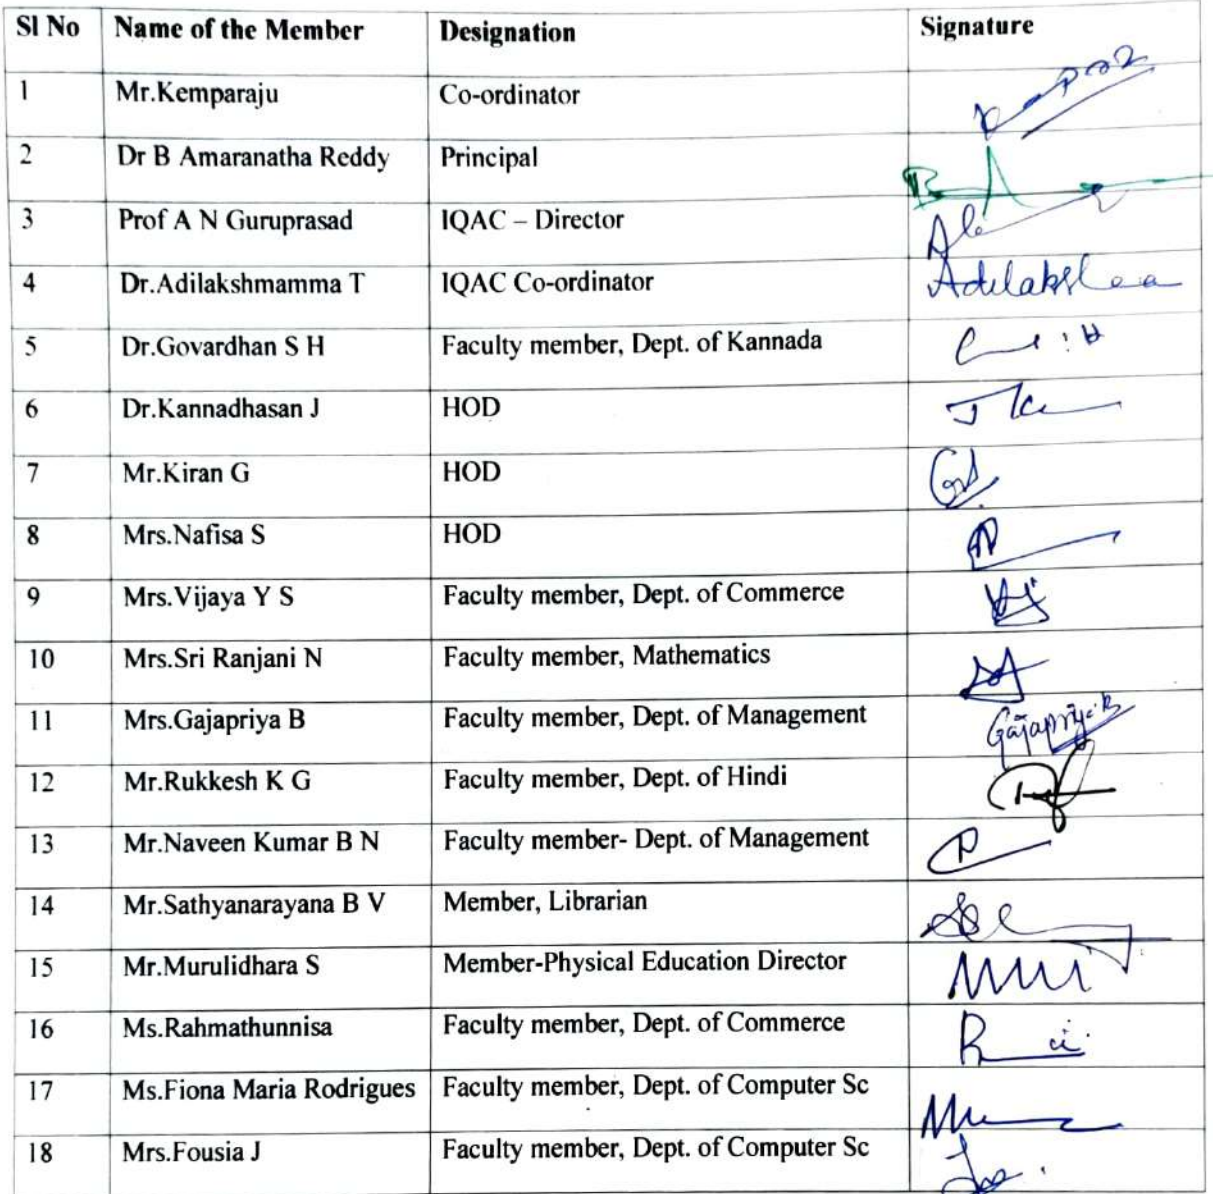 Sl No Name of the Member Designation Signature
1 Mr.Kemparaju Co-ordinator
2 Dr B Amaranatha Reddy Principal
3 Prof A N Guruprasad IQAC – Director
4 Dr.Adilakshmamma T IQAC Co-ordinator
5 Dr.Govardhan S H Faculty member, Dept. of Kannada
6 Dr.Kannadhasan J HOD
7 Mr.Kiran G HOD
8 Mrs.Nafisa S HOD
9 Mrs.Vijaya Y S Faculty member, Dept. of Commerce
10 Mrs.Sri Ranjani N Faculty member, Mathematics
11 Mrs.Gajapriya B Faculty member, Dept. of Management Gajapriya.B
12 Mr.Rukkesh K G Faculty member, Dept. of Hindi
13 Mr.Naveen Kumar B N Faculty member- Dept. of Management
14 Mr.Sathyanarayana B V Member, Librarian
15 Mr.Murulidhara S Member-Physical Education Director
16 Ms.Rahmathunnisa Faculty member, Dept. of Commerce
17 Ms.Fiona Maria Rodrigues Faculty member, Dept. of Computer Sc
18 Mrs.Fousia J Faculty member, Dept. of Computer Sc